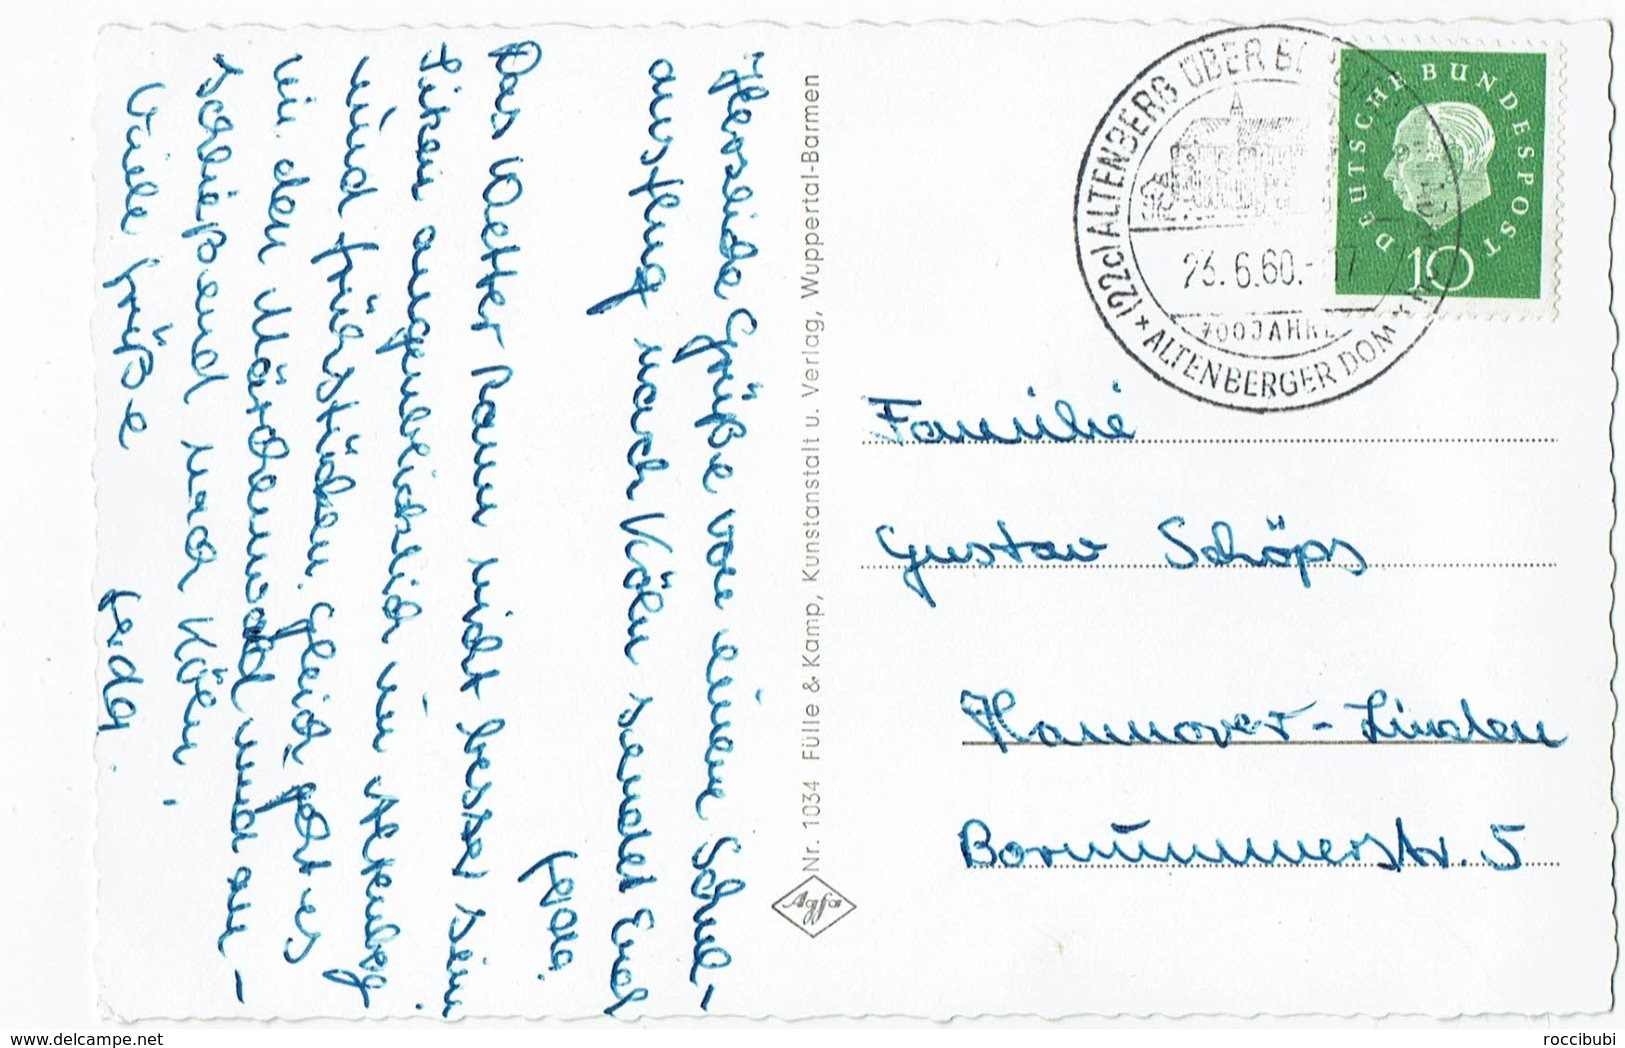 Herzliche Grüße von einem Schul-
ausflug nach Köln sendet Euch
Das Wetter kann nicht besser sein
Sitzen augenblicklich in Altenberg
und frühstücken. Gleich geht es
in den Märchenwald und an-
schließend nach Köln.
Viele Grüße
Nr. 1034 Fülle & Kamp, Kunstanstalt u. Verlag, Wuppertal-Barmen
Agfa
(22c) ALTENBERG ÜBER
23.6.60.-17
700 JAHRE
* ALTENBERGER DOM *
DEUTSCHE BUNDESPOST
10
Familie
Gustav Schöps
Hannover-Linden
Bornumerstr. 5
www.delcampe.net
roccibubi